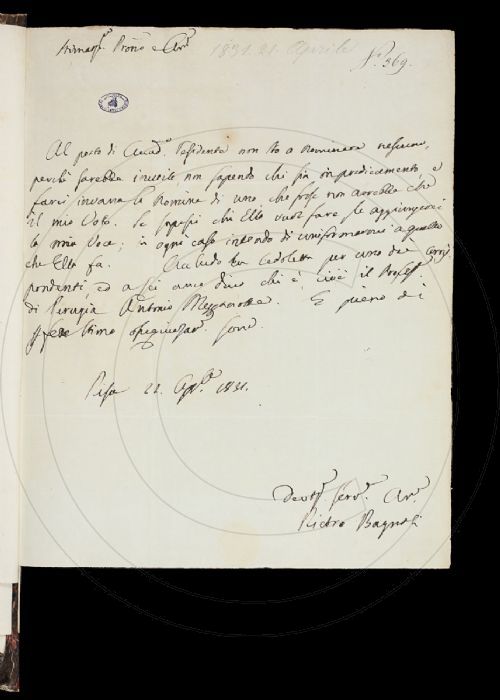 Stimatss.o Proñe e Am.o 1831. 21. Aprile
N.o 369.
Al posto di Accad.o residente non sto a nominare nessuno,
perchè sarebbe inutile, non sapendo chi sia in predicamento, e
farei invano la nomina di uno, che forse non avrebbe che
il mio Voto. Se sapessi chi Ella vuol fare le aggiungerei
la mia voce; in ogni caso intendo di uniformarmi a quello
che Ella fa. Accludo una cedoletta per uno dei corris-
pondenti, ed a Lei anco dico chi è, cioè il Profess.e
di Perugia Antonio Mezzanotte. E pieno di
stima sono
Pisa 21. Ap.le 1831.
Devotss. Serv.e Am.o
Pietro Bagnoli